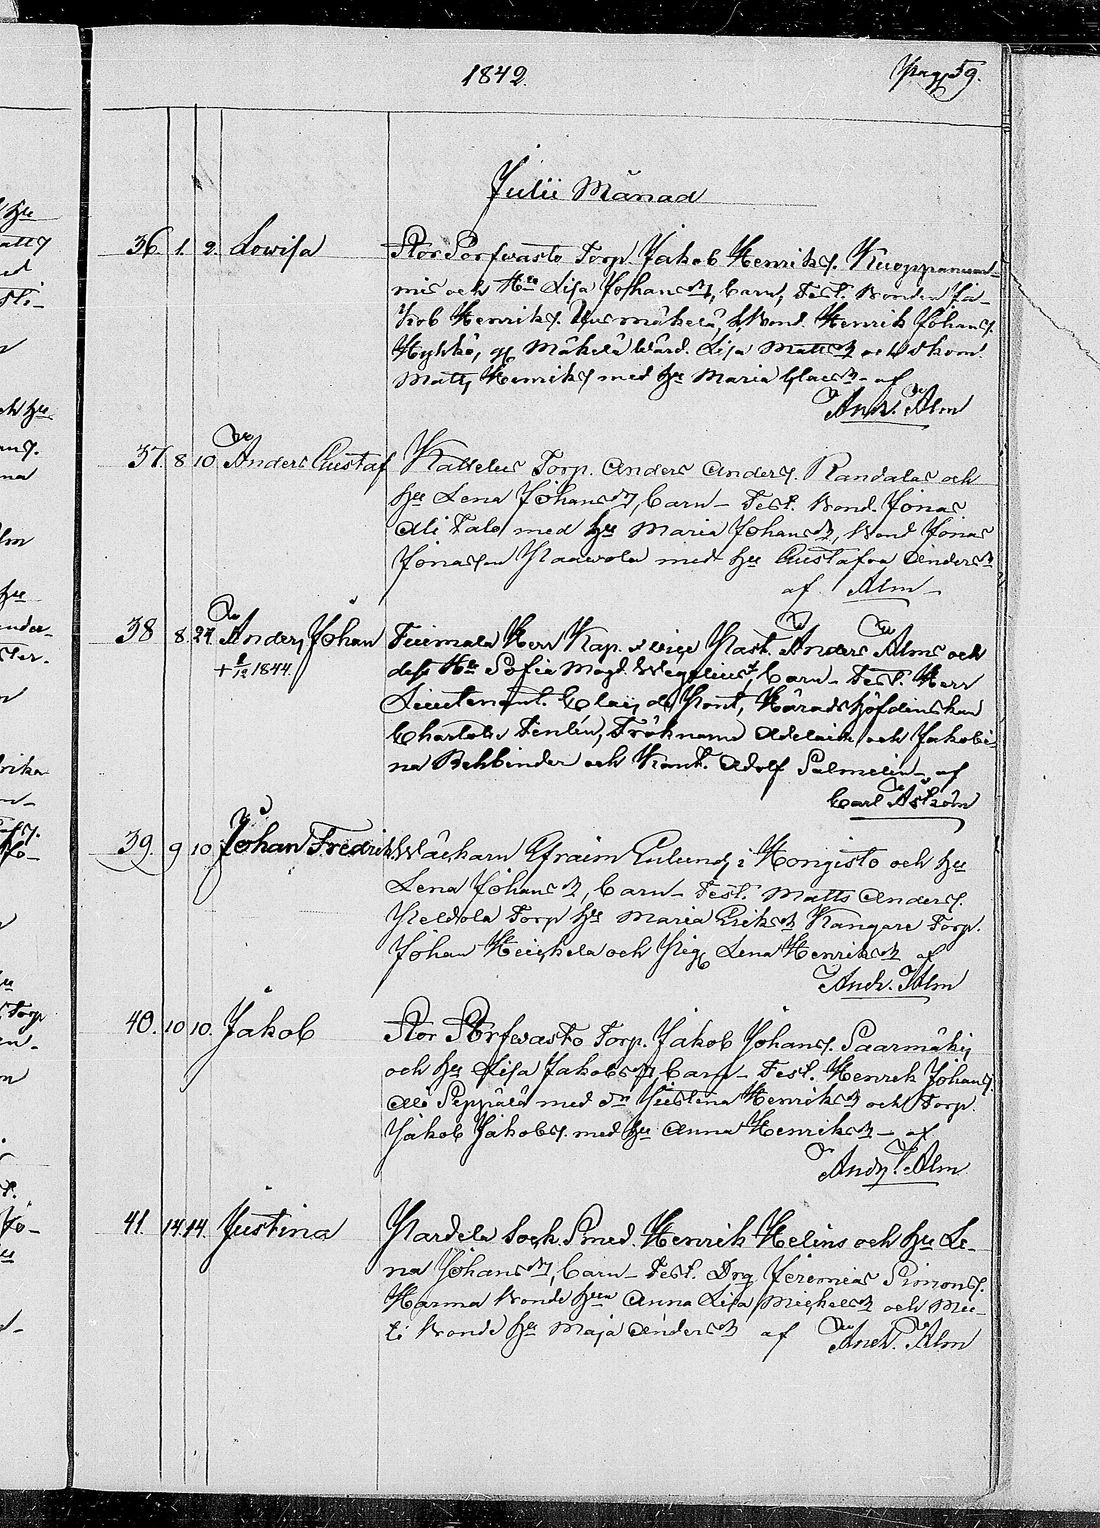 1842.
Pag. 59.
Julii Månad
36. 1. 2. Lowisa
Stor Sorfwasto Torp. Jakob Henriks. Kuoppanwan-
mie och H:u Lisa Johansdr, barn, Test. Bonden Ja-
kob Henriks. Uusmäkelä, Bond. Henrik Johans.
Hyhkö, Mäkelä Wärd. Lisa Mattsdr och
Matts Henriks med Hu Maria Claesdr af
And. Alm
37. 8 10 Anders Gustaf
Kattelus Torp. Anders Anders. Randala och
Hu Lena Johansdr, barn – Test. Bond. Jonas
Ali Talo med Hu Maria Johansdr, Bond Jonas
Jonasson med Hu Gustafva Andersdr
af Alm –
38 8. 24. Anders Johan
+ 6/12 1844.
Herr Kap. Past. Anders Alms och
dess Hu Sofia Magd. Wegelius, barn – Test. Herr
Lieutenant. Claes de Pont, Häradshöfdinskan
Charlotte Tenlén, Fröknarne Adelaide och Jakobi-
na Rehbinder och Kant. Adolf Salmelin – af
Carl Åström
39. 9 10. Johan Fredrik
Efraim Eklund i Kongisto och Hu
Lena Johansdr, barn – Test. Matts Anders.
Peldola Torp Hu Maria Eriksdr Kangare Torp.
Johan Heickela och Pig. Lena Henriksdr af
And. Alm
40. 10 10. Jakob
Stor Sorfwasto Torp. Jakob Johans. Saarmäki,
och Hu Lisa Jakobsdr, barn – Test. Henrik Johans.
Ali Seppälä med dr Justina Henriksdr och Torp.
Jakob Jakobs. med Hu Anna Henriksdr – af
And. Alm
41. 14 14. Justina
Pardela Sock. Smed. Henrik Helins och Hu Le-
na Johansdr, barn – Test. Drg Jeremias Simons.
Harma Bonde Hu Anna Lisa Michelsdr och Mie-
ti Bonde Hu Maja Andersdr af And. Alm